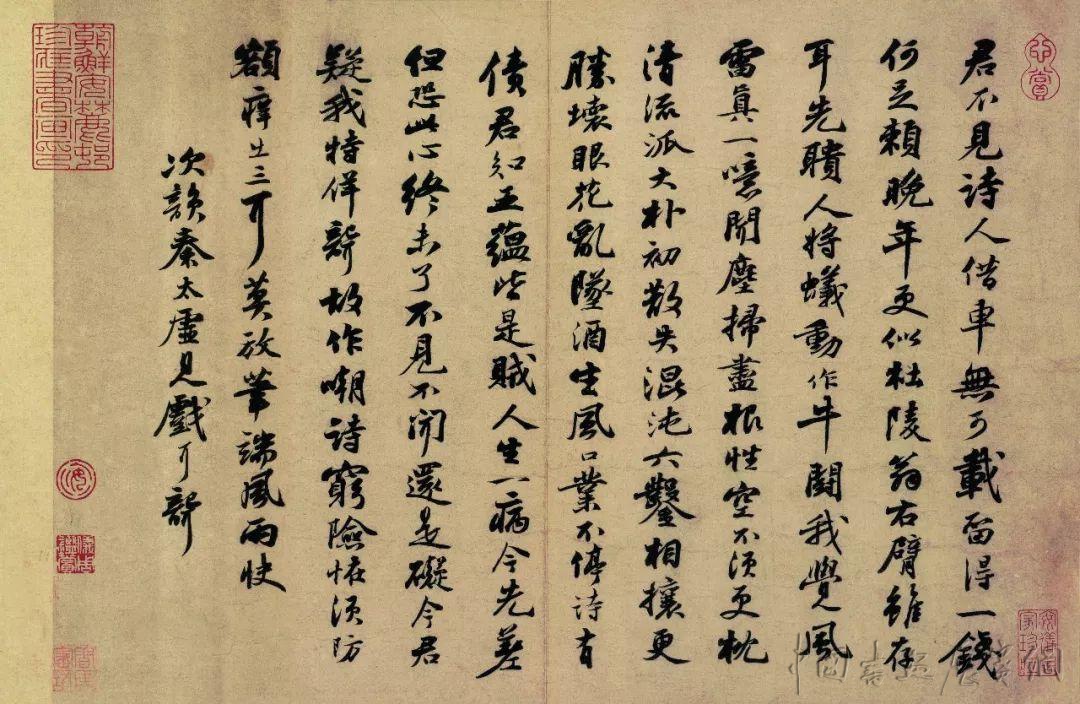 君不見詩人借車無可載留得一錢
何足賴晚年更似杜陵翁右臂雖存
耳先聵人將蟻動作牛鬭我覺風
雷真一噫聞塵掃盡根性空不須更枕
清流派大朴初散失混沌六鑿相攘更
勝壞眼花亂墜酒生風口業不停詩有
債君知五蘊皆是賊人生一病今先差
但恐此心終未了不見不聞還是礙今君
疑我特佯聾故作嘲詩窮險怪須防
額癢出三耳莫放筆端風雨快
次韻秦太虛見戲耳聾
心賞
安儀周
家珍藏
朝鮮安麓邨
珍藏書畫印